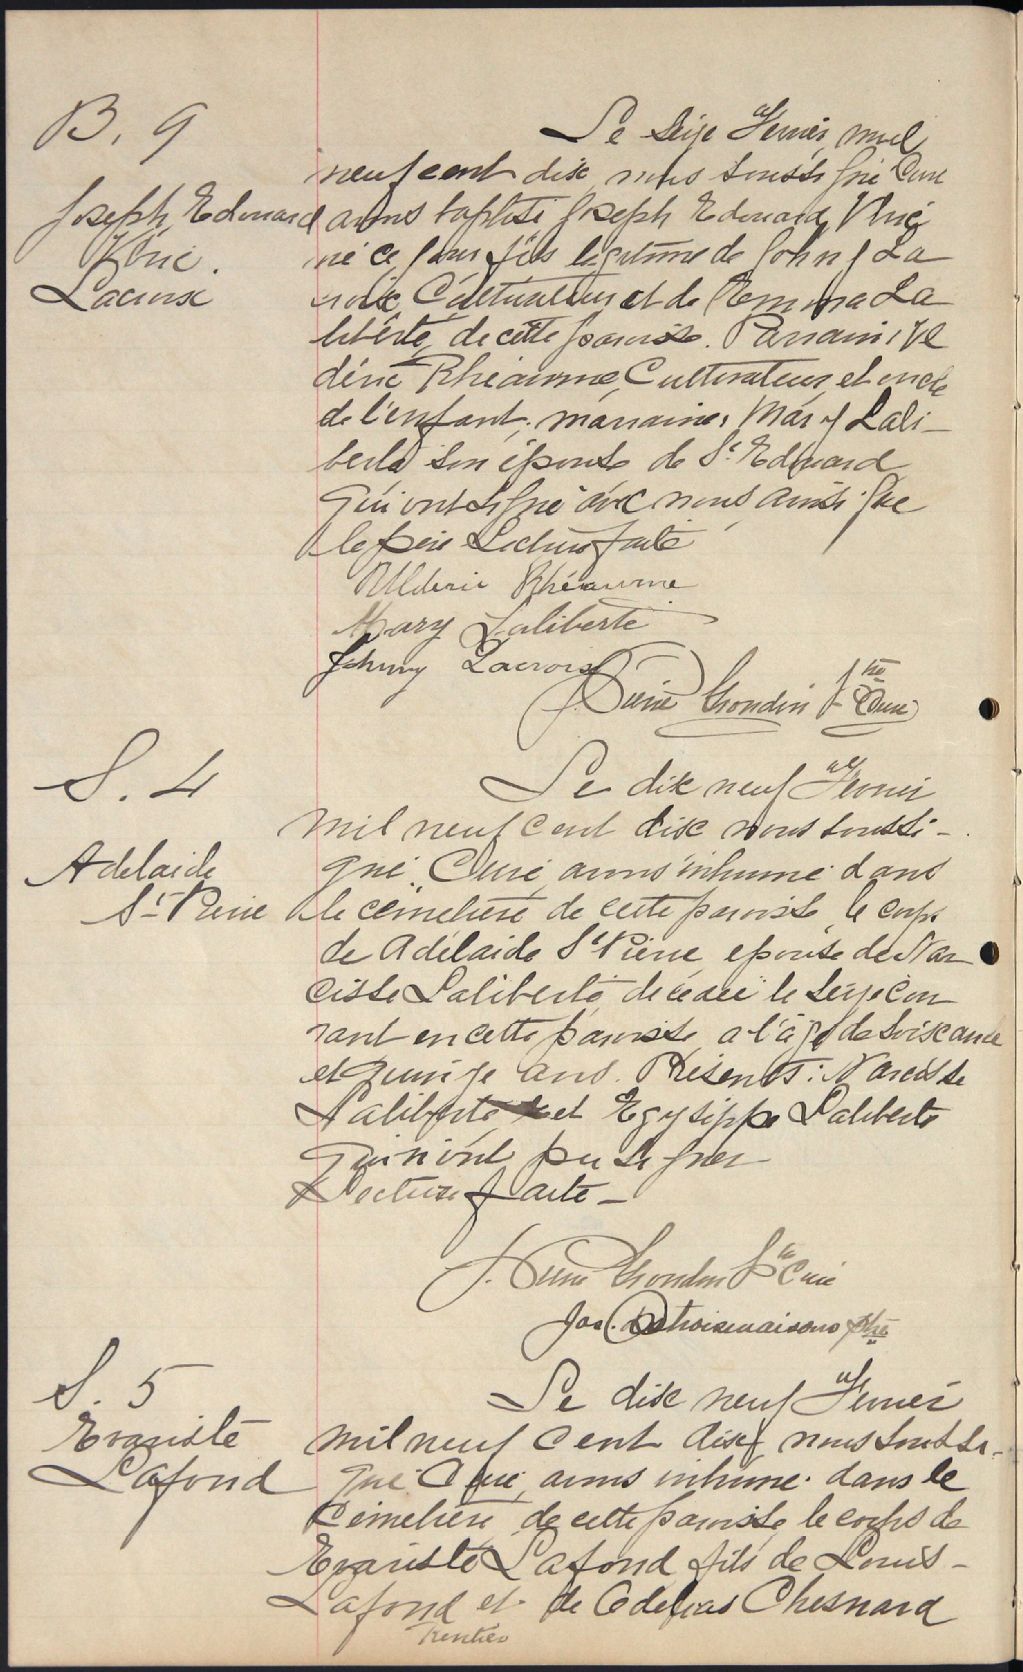 B. 9
Joseph Edouard
Lacroix
Le seize Fevrier mil
neuf cent dix nous soussigné Curé
avons baptisé Joseph Edouard
né ce jour fils légitime de Johny La
croix Cultivateur et de Emma La
liberté, de cette paroisse. Parrain: Ul
déric Rhéaume, Cultivateur, et oncle
de l'enfant; marraine: Mary Lali-
berté son épouse de St Edouard
qui ont signé avec nous ainsi que
le père Lecture faite
Ulderic Rhéaume
Mary Laliberté
Johnny Lacroix
J. Pierre Grondin Ptre Curé
S. 4
Adelaide
St Pierre
Le dix neuf Fevrier
mil neuf cent dix nous soussi-
gné Curé, avons inhumé dans
le cimetière de cette paroisse, le corps
de Adélaide St Pierre épouse de Nar
cisse Laliberté, décédée le seize cou
rant en cette paroisse a l'âge de soixante
et quinze ans. Présents: Narcisse
Laliberté et Egysippe Laliberté
qui n'ont pu signer
Lecture faite –
J. Pierre Grondin Ptre Curé
Jos. Destroismaisons Ptre
S. 5
Evariste
Lafond
Le dix neuf Fevrier
mil neuf cent dix, nous soussi-
gné Curé, avons inhumé dans le
Cimetière de cette paroisse, le corps de
Evariste Lafond fils de Louis
Lafond et de Chesnard
Rentier